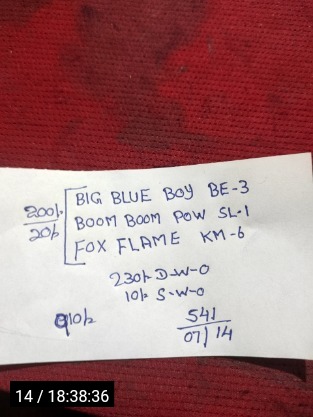 BIG BLUE BOY BE-3
200/- BOOM BOOM POW SL-1
20/- FOX FLAME KM-6
230/- D-W-O
10/- S-W-O
910/- 541
07/14
14 / 18:38:36